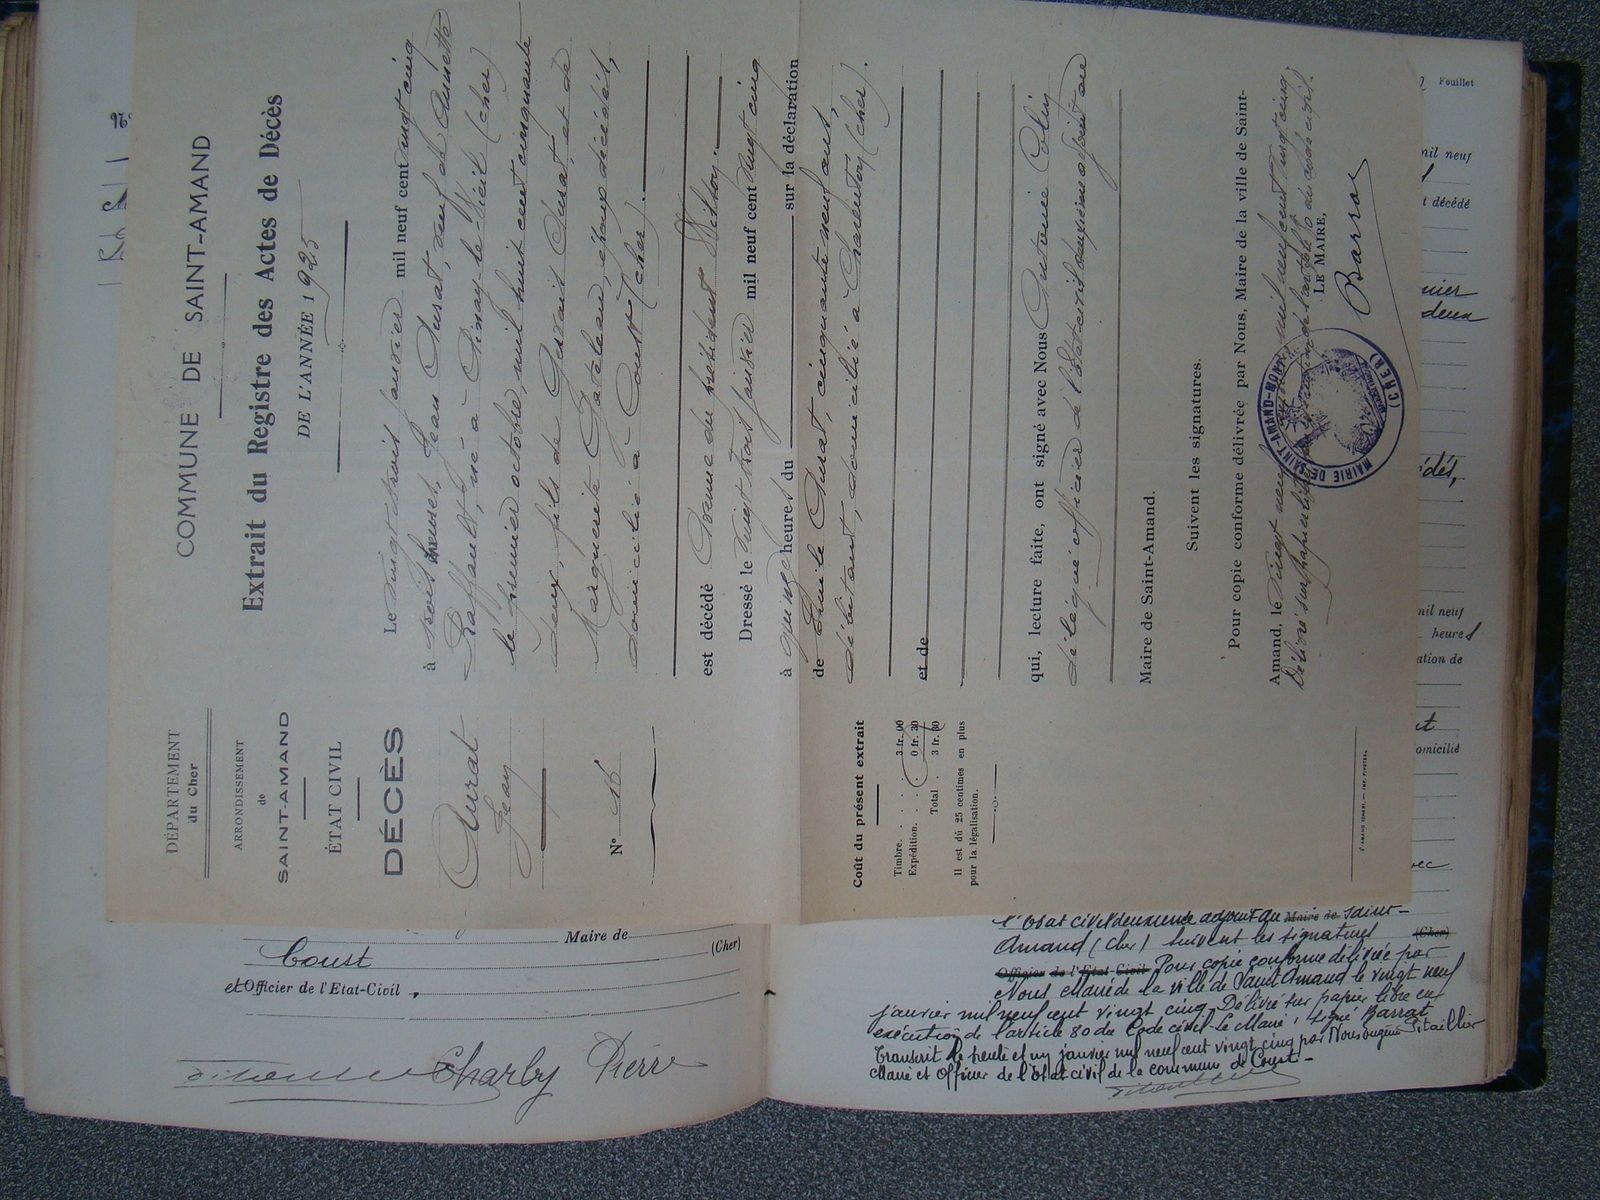 DÉPARTEMENT
du Cher
ARRONDISSEMENT
de
SAINT-AMAND
ÉTAT CIVIL
DÉCÈS
Aurat
Jean
N° 16
Coût du présent extrait
Timbre. . . . . 3 fr. 00
Expédition. . . . 0 fr. 30
Total . . 3 fr. 30
Il est dû 25 centimes en plus
pour la légalisation.
COMMUNE DE SAINT-AMAND
Extrait du Registre des Actes de Décès
DE L'ANNÉE 1925
Le vingt trois janvier mil neuf cent vingt cinq
à heures, Jean Aurat, veuf de Annette
Raffault, né à le Vieil (Cher)
le premier octobre, mil huit cent cinquante
deux, fils de Gervais Aurat, et de
Marguerite Gateleau, époux décédés,
domicilié à Coust (Cher).
est décédé
Dressé le vingt trois janvier mil neuf cent vingt cinq
à quinze heures du sur la déclaration
de Emile Aurat, cinquante neuf ans,
débitant, domicilié à Charenton (Cher).
et de
qui, lecture faite, ont signé avec Nous Antoine Colin
délégué officier de l'état civil deuxième adjoint au
Maire de Saint-Amand.
Suivent les signatures.
Pour copie conforme délivrée par Nous, Maire de la ville de Saint-
Amand, le vingt neuf janvier mil neuf cent vingt cinq
Délivré sur papier libre en exécution de l'article 80 du code civil.
LE MAIRE,
Barrat
MAIRIE DE SAINT-AMAND-MONTROND
(CHER)
Maire de
Coust (Cher)
et Officier de l'Etat-Civil .
Charby Pierre
Feuillet
mil neuf
décédé
deux
édés,
mil neuf
heures
ation de
omicilié
l'Etat civil deuxième adjoint au Maire de Saint-
Amand (Cher) Suivent les signatures (Cher)
Officier de l'Etat-Civil Pour copie conforme délivrée par
Nous Maire de la ville de Saint Amand le vingt neuf
janvier mil neuf cent vingt cinq Délivré sur papier libre en
exécution de l'article 80 du Code civil Le Maire, signé Barrat
Transcrit le trente et un janvier mil neuf cent vingt cinq par Nous Eugène Pitaillier
Maire et Officier de l'Etat civil de la commune de Coust -